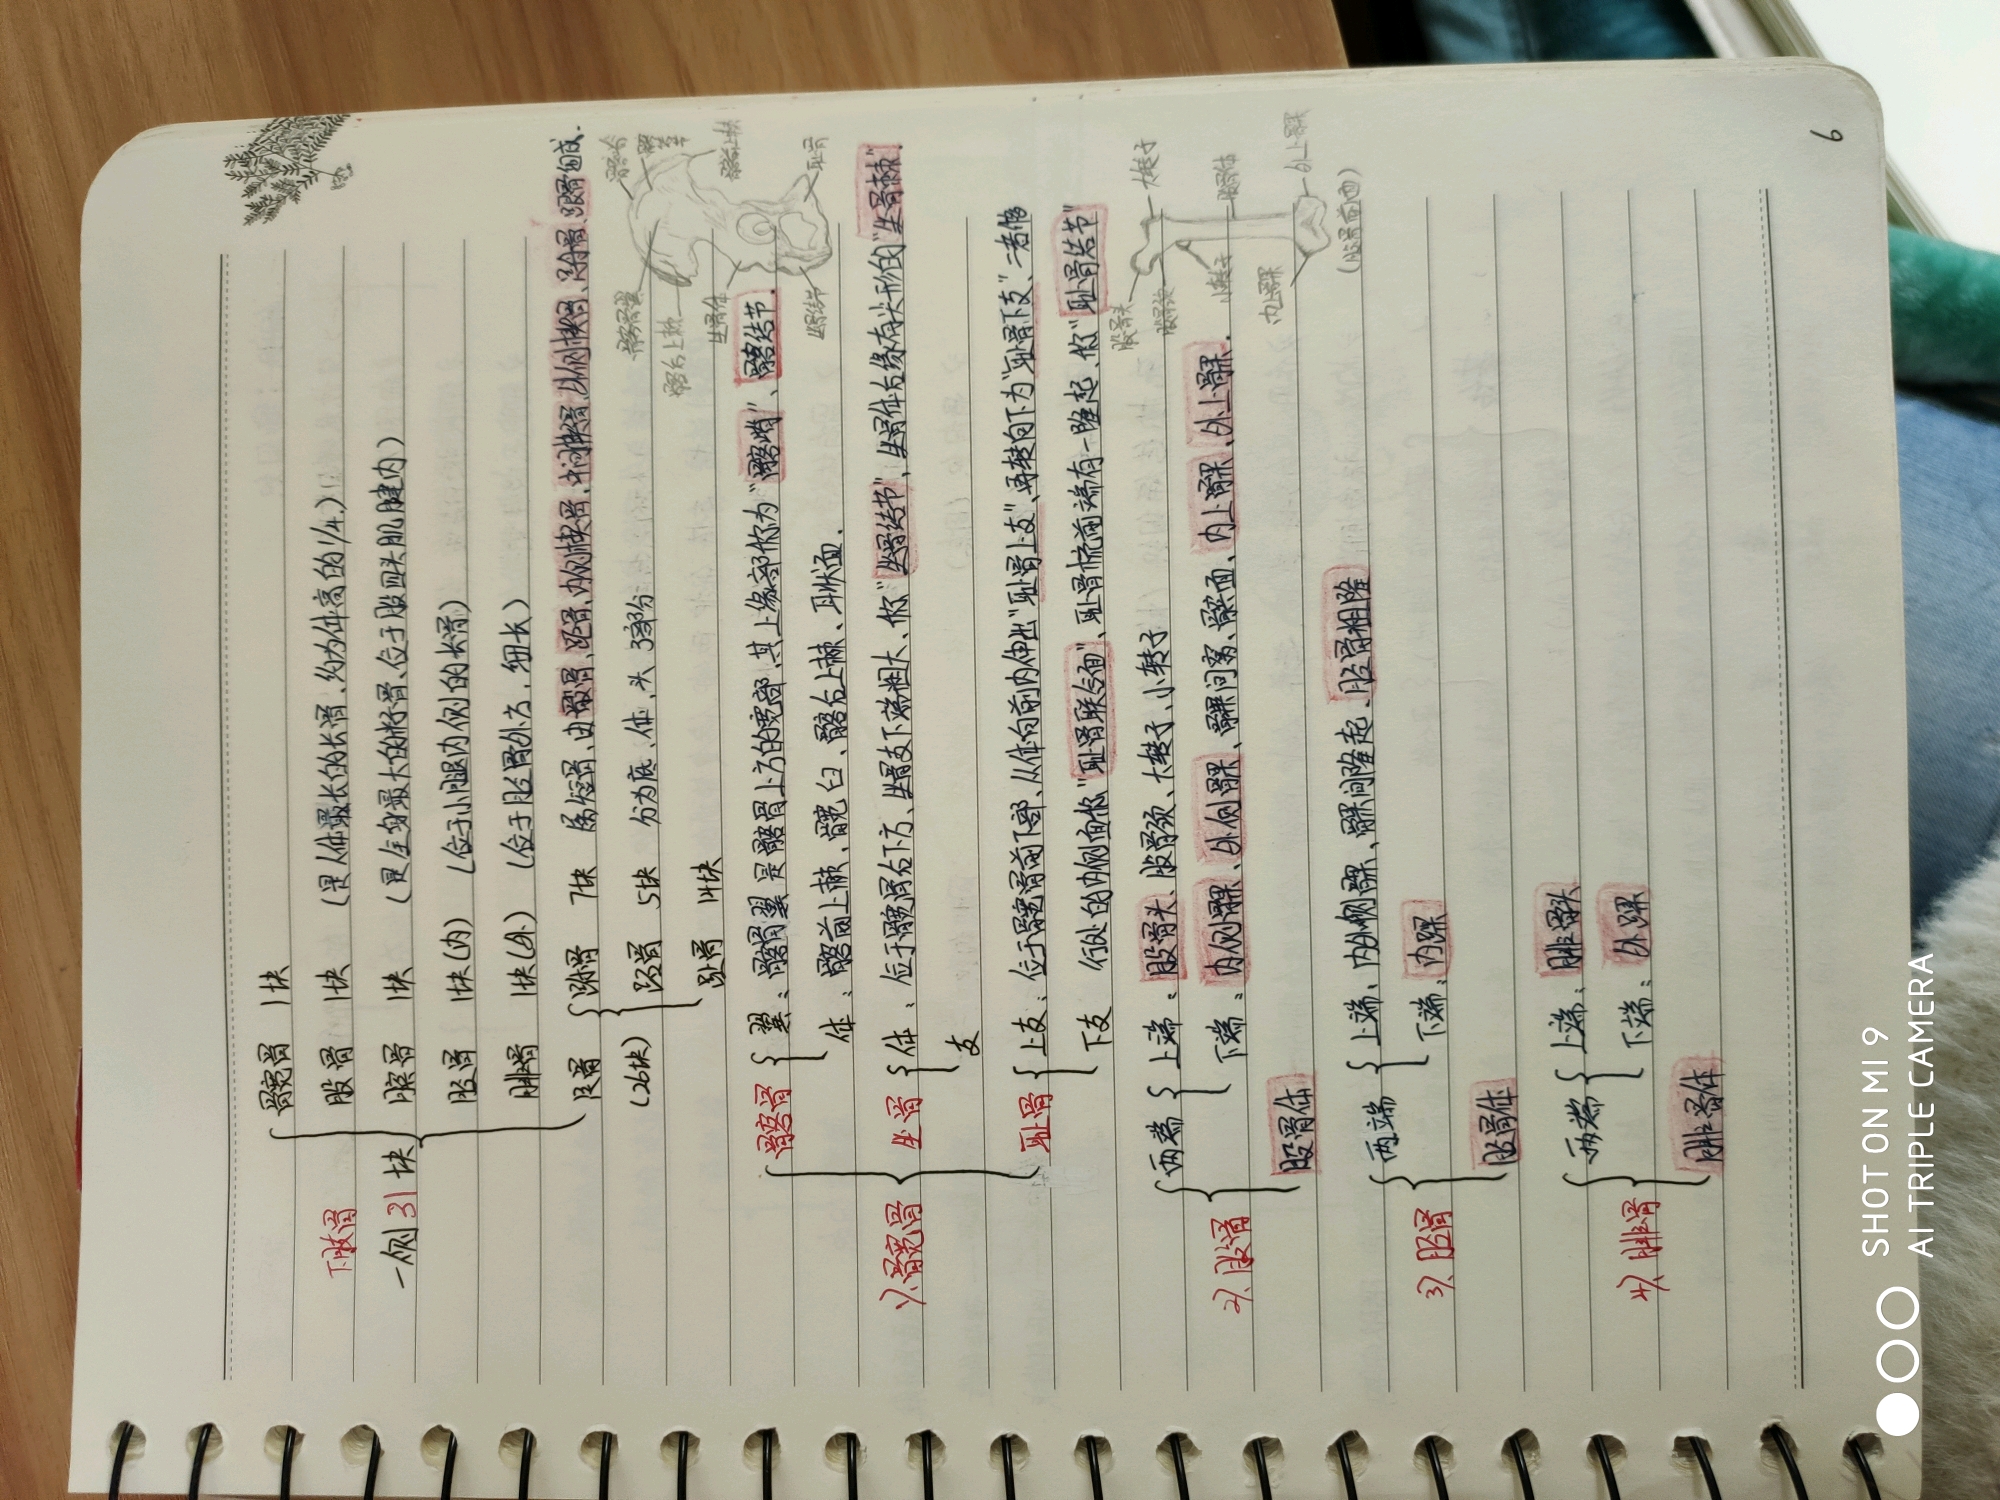 下肢骨
一侧31块
髋骨 1块
股骨 1块 (是人体最长的长骨、约为体高的1/4.)
髌骨 1块 (是全身最大的籽骨、位于股四头肌腱内)
胫骨 1块(内) (位于小腿内侧的长骨)
腓骨 1块(外) (位于胫骨外方,细长)
足骨 (26块)
跗骨 7块 属短骨、由骰骨、距骨、内侧楔骨、中间楔骨、外侧楔骨、足舟骨、跟骨组成.
跖骨 5块 分为底、体、头 3部分
趾骨 14块
1)、髋骨
髂骨
翼:髂骨翼是髂骨上方的宽部,其上缘部称为“髂嵴”、髂结节.
体:髂前上棘、髋臼、髂后上棘、耳状面.
坐骨
体:位于髋骨后下方、坐骨支下端粗大、称“坐骨结节”、坐骨体后缘有尖形的“坐骨棘”.
支
耻骨
上支:位于髋骨前下部、从体向前内伸出“耻骨上支”、再转向下为“耻骨下支”、二者移
下支 行处的内侧面称“耻骨联合面”、耻骨梳前端有一隆起、称“耻骨结节”
髂骨翼
髂后上棘
坐骨体
坐骨结节
耻骨
2)、股骨
两端
上端:股骨头、股骨颈、大转子、小转子
下端:内侧髁、外侧髁、髁间窝、髌面、内上髁、外上髁.
股骨体
股骨头
股骨颈
大转子
小转子
股骨体
内上髁
外上髁
(股骨前面)
3)、胫骨
两端
上端、内外侧髁、髁间隆起、胫骨粗隆
下端:内踝
胫骨体
4)、腓骨
两端
上端:腓骨头
下端:外踝
腓骨体
6
SHOT ON MI 9
AI TRIPLE CAMERA